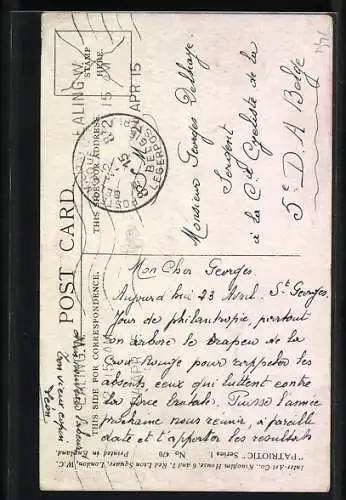 POST CARD.
THIS SIDE FOR CORRESPONDENCE.
THIS SIDE FOR ADDRESS
STAMP
HERE.
EALING W.
APR 15
LEGERPOST
Monsieur Georges Delhaye
Sergent
à la Cie Cycliste de la
5e D. A Belge
Mon Cher Georges.
Aujourd'hui 23 Avril. St Georges
Jour de philantropie, partout
on arbore le drapeau de la
Croix Rouge pour rappeler les
absents, ceux qui luttent contre
la force brutale. Puisse l'année
prochaine nous réunir, à pareille
date et t'apporter les résultats
Ton vieux copain
Inter-Art Co., Kingsway House, 6 and 7, Red Lion Square, London, W.C.
"PATRIOTIC" Series 1. No 470 Printed in England.